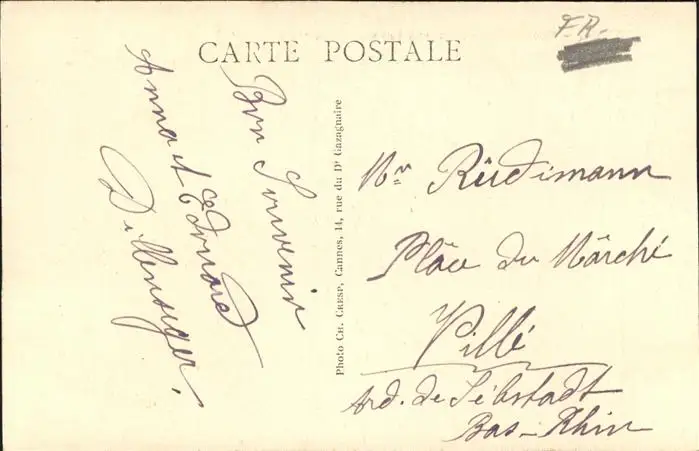 CARTE POSTALE
F.R.
Bon Souvenir
Anna et Edouard
Dillenseger.
Photo Ch. Cresp, Cannes, 14, rue du Dr Gazagnaire
Mr Rüdimann
Plâce du Mârché
Villé
Ard. de Sélestadt
Bas-Rhin